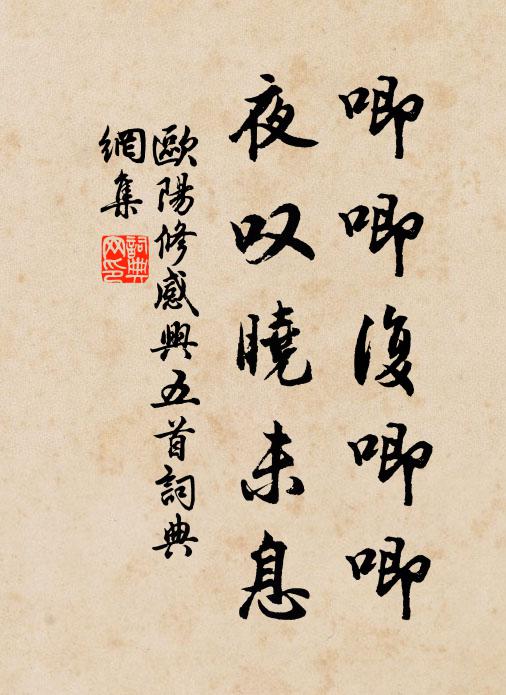 唧唧復唧唧
夜叹曉未息
歐陽修感興五首詞典
網集
詞典
网印